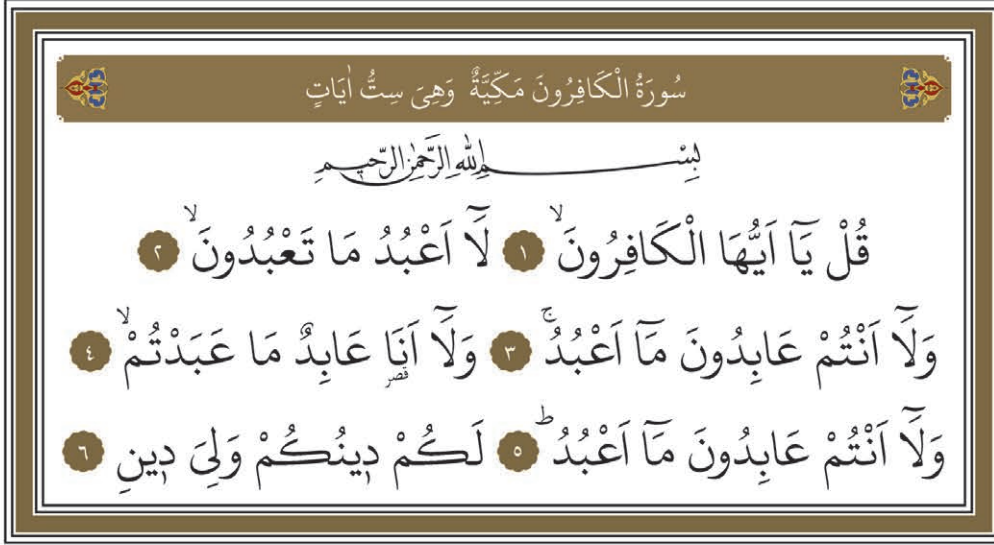 سُورَةُ الْكَافِرُونَ مَكِّيَّةٌ وَهِىَ سِتُّ اٰيَاتٍ
بِسْمِ اللهِ الرَّحْمٰنِ الرَّحِيمِ
قُلْ يَٓا اَيُّهَا الْكَافِرُونَۙ ١ لَٓا اَعْبُدُ مَا تَعْبُدُونَۙ ٢
وَلَٓا اَنْتُمْ عَابِدُونَ مَٓا اَعْبُدُۚ ٣ وَلَٓا اَنَا۬ عَابِدٌ مَا عَبَدْتُمْۙ ٤
قصر
وَلَٓا اَنْتُمْ عَابِدُونَ مَٓا اَعْبُدُۜ ٥ لَكُمْ د۪ينُكُمْ وَلِىَ د۪ينِ ٦